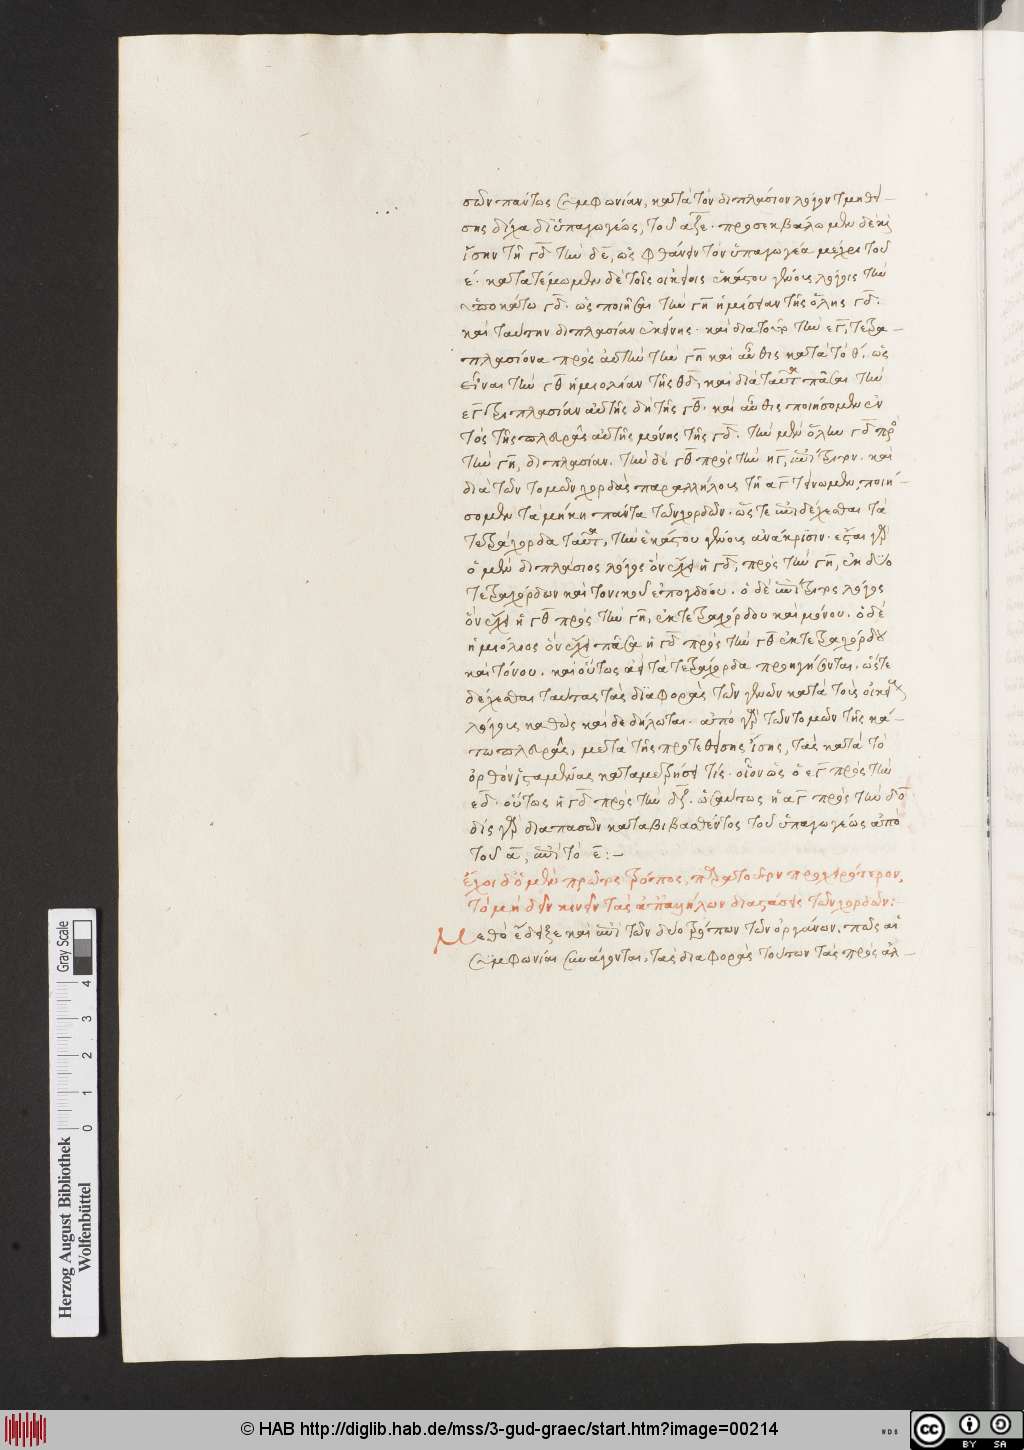 σῶν πάντως συμφωνίαν, κατὰ τὸν διπλάσιον λόγον τμηθεί-
σης δίχα δι' ὑπαγωγέως, τοῦ αξε. προσεκβάλωμεν δὲ καὶ
ἴσην τῇ γδ τὴν δε, ὡς φθάνειν τὸν ὑπαγωγέα μέχρι τοῦ
ε. κατατέμωμεν δὲ τοῖς οἰκείοις ἑκάστου γένους λόγοις τὴν
ὑποκάτω γδ. ὡς ποιῆσαι τὴν γη ἡμίσειαν τῆς ὅλης γδ.
καὶ ταύτην διπλασίαν ἐκείνης. καὶ διὰ τοῦτο τὴν εγ, τετρα-
πλασίονα πρὸς αὐτὴν τὴν γη καὶ αὖθις κατὰ τὸ θ, ὡς
εἶναι τὴν γθ ἡμιολίαν τῆς θδ, καὶ διὰ ταῦτα πᾶσαι τὴν
εγ τριπλασίαν αὐτῆς δὴ τῆς γθ. καὶ αὖθις ποιήσομεν ἐν
τὸς τῆς πλευρᾶς αὐτῆς μόνης τῆς γδ. τὴν μὲν ὅλην γδ πρὸς
τὴν γη, διπλασίαν. τὴν δὲ γθ πρὸς τὴν ηγ, ἐπίτριτον. καὶ
διὰ τῶν τομῶν χορδὰς παραλλήλους τῇ αγ τείνωμεν, ποιή-
σομεν τὰ μήκη πάντα τῶν χορδῶν. ὥστε ἐπιδέχεσθαι τὰ
τετράχορδα ταῦτα, τὴν ἑκάστου γένους ἀνάκρισιν. ἔσται γὰρ
ὁ μὲν διπλάσιος λόγος ὃν ἔχει ἡ γδ, πρὸς τὴν γη, ἐκ δύο
τετραχόρδων καὶ τονικοῦ ἐπογδόου. ὁ δὲ ἐπίτριτος λόγος
ὃν ἔχει ἡ γθ πρὸς τὴν γη, ἐκ τετραχόρδου καὶ μόνου. ὁ δὲ
ἡμιόλιος ὃν ἔχει πᾶσα ἡ γδ πρὸς τὴν γθ ἐκ τετραχόρδου
καὶ τόνου. καὶ οὕτως ἀεὶ τὰ τετράχορδα προηγήσονται. ὥστε
δέχεσθαι ταύτας τὰς διαφορὰς τῶν γενῶν κατὰ τοὺς οἰκείους
λόγους καθὼς καὶ δεδήλωται. ἀπὸ γὰρ τῶν τομῶν τῆς κά-
τω πλευρᾶς, μετὰ τῆς προτεθείσης ἴσης, τὰς κατὰ τὸ
ὀρθὸν ἱσταμένας καταμετρήσει τίς. οἷον ὡς ὁ εγ πρὸς τὴν
εδ. οὕτως ἡ γδ πρὸς τὴν δξ. ὡσαύτως ἡ αγ πρὸς τὴν δο
δὶς γὰρ διαπασῶν καταβιβασθέντος τοῦ ὑπαγωγέως ἀπὸ
τοῦ α, ἐπὶ τὸ ε:-
ἔχοι δ' ὁ μὲν πρῶτος τρόπος, παρὰ τοῦτον προχειρότερον,
τὸ μὴ δεῖν κινεῖν τὰς ἀπ' ἀλλήλων διαστάσεις τῶν χορδῶν:-
Μεθὸ ἔδειξε καὶ ἐπὶ τῶν δύο τρόπων τῶν ὀργάνων. πῶς αἱ
συμφωνίαι συνάγονται, τὰς διαφορὰς τούτων τὰς πρὸς ἀλ-
Herzog August Bibliothek
Wolfenbüttel
0 1 2 3 4
Gray Scale
© HAB http://diglib.hab.de/mss/3-gud-graec/start.htm?image=00214
WDB
cc BY SA